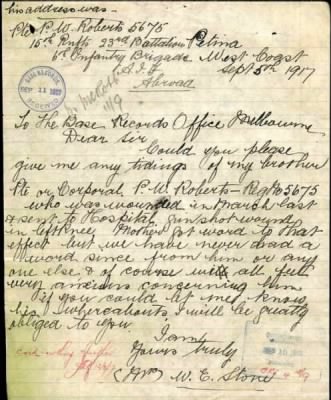 his address was -
Pte P. W. Roberts 5675
15th Rnfts 23rd Battalion Petina
6th Infantry Brigade West Coast
A.I.F. Sept 5th 1917
Abroad
BASE RECORDS
SEP 11 1917
RECEIVED
11/9
To The Base Records Office Melbourne
Dear Sir
Could you please
give me any tidings of my brother
Pte or Corporal P. W. Roberts - Reg No 5675
who was wounded in March last
& sent to Hospital, gunshot wound
in left knee. Mother got word to that
effect but we have never had a
word since from him or any
one else & of course we all feel
very anxious concerning him
if you could let me know
his whereabouts I will be greatly
obliged to you.
I am
Yours truly
(Mrs) W. E. Stone